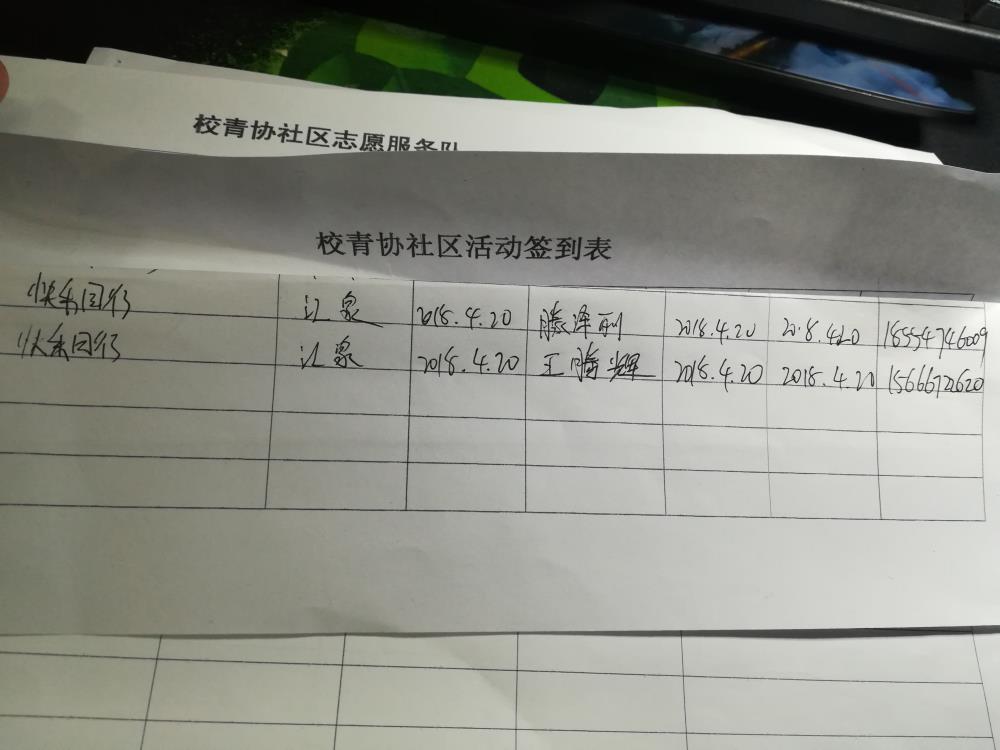 校青协社区志愿服务队
校青协社区活动签到表
快乐同行 让泉 2018.4.20 滕泽利 2018.4.20 2018.4.20 18554746009
快乐同行 让泉 2018.4.20 王腾辉 2018.4.20 2018.4.20 15666722620